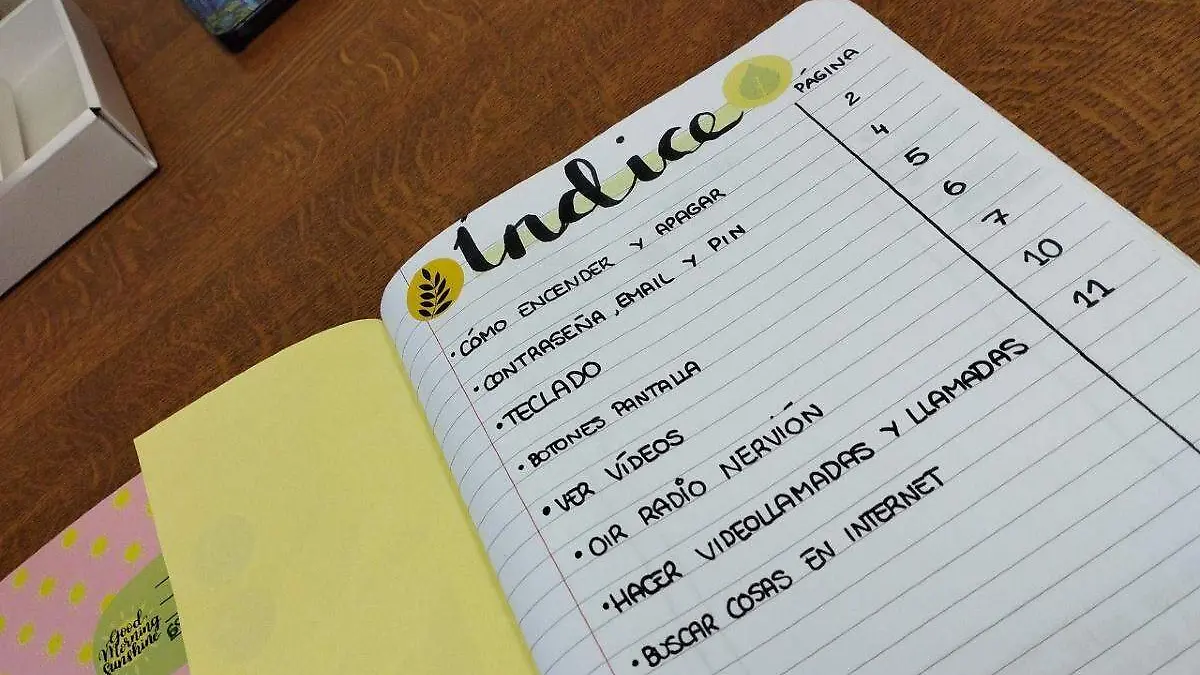 índice PÁGINA
• CÓMO ENCENDER Y APAGAR 2
• CONTRASEÑA, EMAIL Y PIN 4
• TECLADO 5
• BOTONES PANTALLA 6
• VER VÍDEOS 7
• OIR RADIO NERVIÓN 10
• HACER VIDEOLLAMADAS Y LLAMADAS 11
• BUSCAR COSAS EN INTERNET
Good
Morning
sunshine